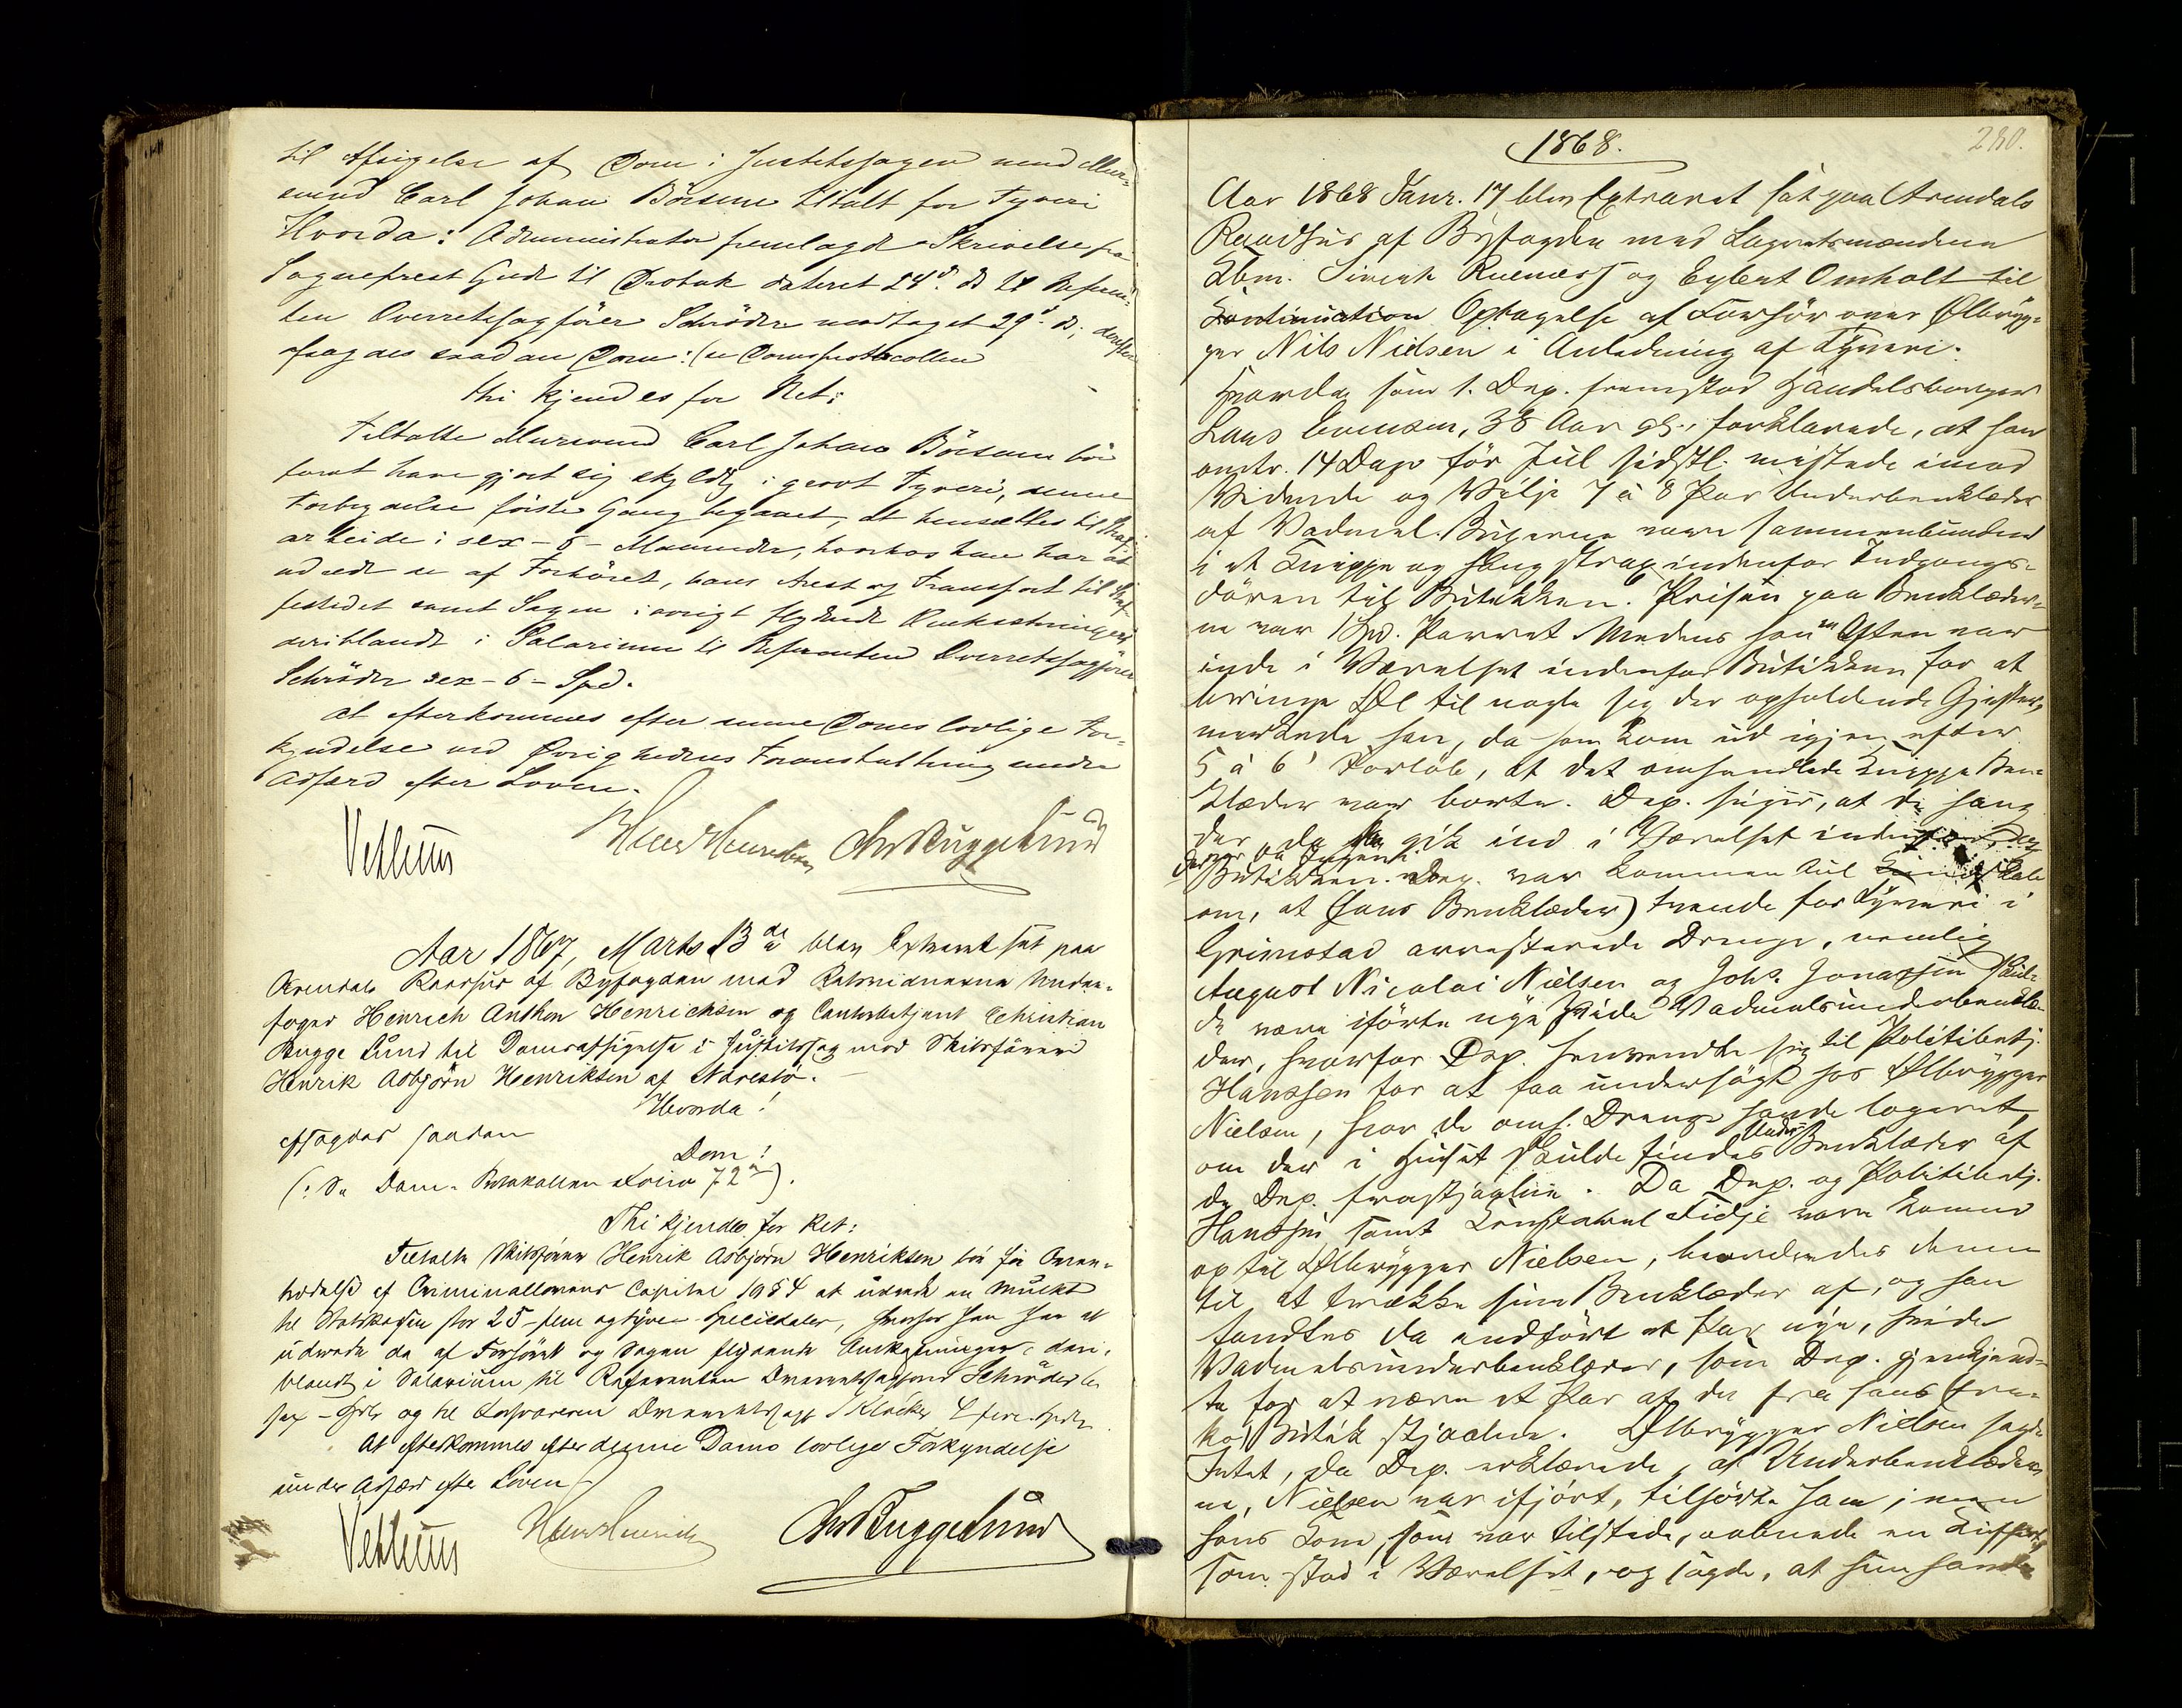 til Afsigelse af Dom i Justitssagen mod Mur-
svend Carl Johan Börsum tiltalt for Tyveri
Hvorda: Administrator fremlagde Skrivelse fra
Sogneprest Gude til Protok dateret 24d. ds til Referen-
ten Overretssagfører Schrøder modtaget 29d. ds; derefter
afsagdes saadan Dom: (se Domsprotocollen
thi kjendes for Ret:
Tiltalte Mursvend Carl Johan Börsum bör
for at have gjort sig skyldig i grovt Tyveri, denne
Forbrydelse förste Gang begaaet, at hensættes til Straf-
arbeide i sex - 6 - Maaneder, hvorhos han har at
udrede de af Forhöret, hans Arrest og Transport til Straf-
festedet samt Sagen i övrigt flydende Omkostninger
deriblandt i Salarium til Referenten Overretssagförer
Schröder sex - 6 - Spd.
At efterkommes efter denne Doms lovlige For-
kyndelse ved Övrighedens Foranstaltning under
Adfærd efter Loven.
Chr Bugge Lund
Aar 1867, Marts 13de blev Extraret sat paa
Arendals Raadhus af Byfogden med Retsvidnerne Under-
foged Henrich Anthon Henrichsen og Contorbetjent Christian
Bugge Lund til Domsafsigelse i Justitssag mod Skibsförer
Henrik Asbjörn Henriksen af Narestö.
Hvorda!
afsagdes saadan
Dom!
(: Se Dom-Protokollen Folio 72).
Thi kjendes for Ret:
Tiltalte Skibsförer Henrik Asbjörn Henriksen bör for Over-
trædelse af Criminallovens Capitel 19 § 4 at udrede en Mulkt
til Statskassen stor 25 - fem og tyve - Speciedaler, hvorhos han har at
udrede de af Forhöret og Sagen flydende Omkostninger, deri-
blandt i Salarium til Referenten Overretssagförer Schröder
sex - Spdlr og til Defensoren Overretssagf Klöcker 4 fire Spdlr.
At efterkommes efter denne Doms lovlige Forkyndelse
under Adfærd efter Loven
Chr Bugge Lund
1868.
280.
Aar 1868 Janr. 17 blev Extraret sat paa Arendals
Raadhus af Byfogden med Lagretsmændene
Kbm. Sivert Ruenæss og Eylert Omholt til
Continuation Optagelse af Forhör over Ölbryg-
ger Nils Nielsen i Anledning af Tyveri.
Hvorda, som 1. Dep. fremstod Handelsborger
Lars Evensen, 38 Aar gl. i forklarede, at han
omtr. 14 Dage för Jul sidstl. mistede imod
Vidende og Vilje 7 à 8 Par Underbenklæder
af Vadmel. Buxerne vare sammenbundne
i et Knippe og hang strax indenfor Indgangs-
dören til Butikken. Prisen paa Benklæder-
ne var 1 Spd. Parret. Medens han en Aften var
inde i Værelset indenfor Butikken for at
bringe Öl til nogle sig der opholdende Gjester,
mærkede han, da han kom ud igjen efter
5 à 6' Forlöb, at det omhandlede Knippe Ben-
klæder var borte. Dep. siger, at de hang
der, da han gik ind i Værelset indenfor
Butikken. Dep. var kommen til
om, at (hans Benklæder) tvende for Tyveri i
Grimstad arresterede Drenge, nemlig
August Nicolai Nielsen og Johs. Jonassen skul-
de være iförte nye hvide Vadmelsunderbenklæ-
der, hvorfor Dep. henvendte sig til Politibetj.
Hanssen for at faa undersögt hos Ölbrygger
Nielsen, hvor de omh. Drenge havde logeret,
om der i Huset skulde findes Under Benklæder af
de Dep. frastjaalne. Da Dep. og Politibetj.
Hanssen samt Konstabel Fidje vare komne
op til Ölbrygger Nielsen, beordredes denne
til at trække sine Benklæder af, og han
fandtes da endfört et Par nye, hvide
Vadmelsunderbenklæder, som Dep. gjenkjend-
te for at være et Par af de fra hans
Butik stjaalne. Ölbrygger Nielsen sagde
Intet, da Dep. erklærede, at Underbenklæder-
ne, Nielsen var ifjört, tilhörte ham; men
hans Kone, som var tilstede, aabnede en Kuffert,
som stod i Værelset, og sagde, at hun havde